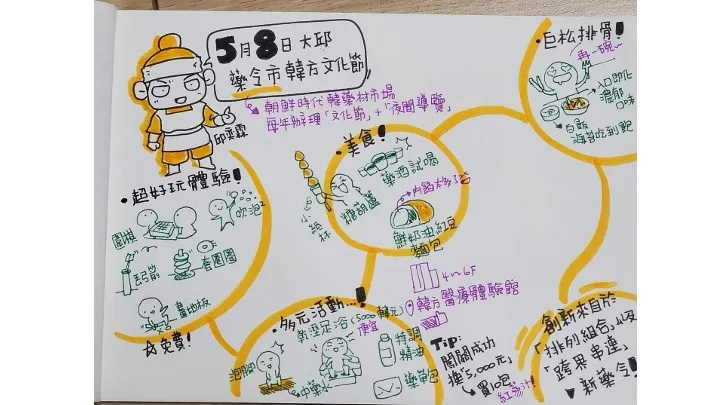 5月8日大邱
藥令市韓方文化節
朝鮮時代韓藥材市場
每年辦理「文化節」+「夜間導覽」
邱奕霖
·超好玩體驗!
圍棋
吹泡泡
丟箭
套圈圈
畫地板
免費!
·美食!
小紙杯
糖葫蘆
藥酒試喝
內餡太多了吧
鮮奶油紅豆
麵包
·巨松排骨!
再一碗~
入口即化
濃郁
口味
白飯
海苔吃到飽
4~6F
韓方醫療體驗館
·多元活動...!
氣澄足浴(5000韓元)
便宜
泡腳
中藥水
特調
精油
藥草包
Tip:
闖關成功
換「5,000元」
買10包
紅蔘汁!
創新來自於:
「排列組合」以及
「跨界串連」
新藥令!